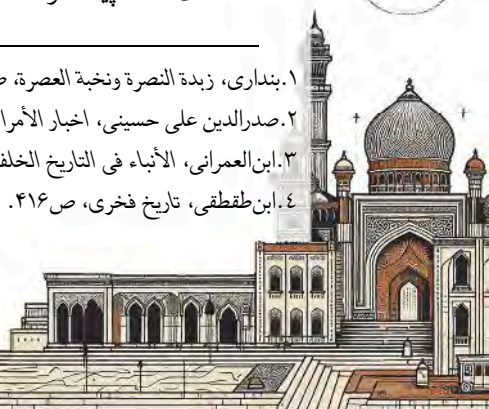 ۱.بنداری، زبدة النصرة ونخبة العصرة،
۲.صدرالدین علی حسینی، اخبار الأمرا
۳.ابن‌العمرانی، الأنباء فی التاریخ الخلف
٤.ابن‌طقطقی، تاریخ فخری، ص۴۱۶.